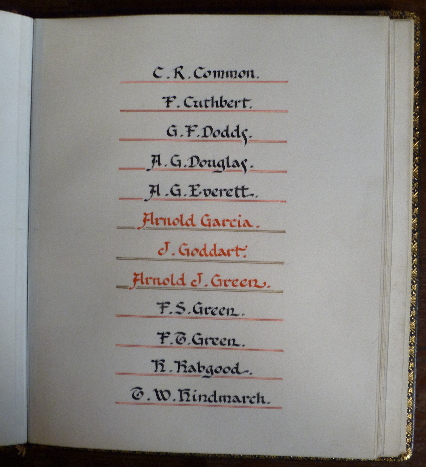 C. R. Common.
F. Cuthbert.
G. F. Dodds.
A. G. Douglas.
A. G. Everett.
Arnold Garcia.
J. Goddart.
Arnold J. Green.
F. S. Green.
F. T. Green.
H. Habgood.
T. W. Hindmarch.